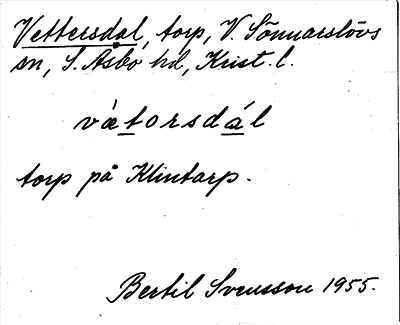 Vettersdal, torp, V. Sönnarslövs
sn, S. Åsbo hd, Krist. l.
vätorsdál
torp på Klintarp.
Bertil Svensson 1955.